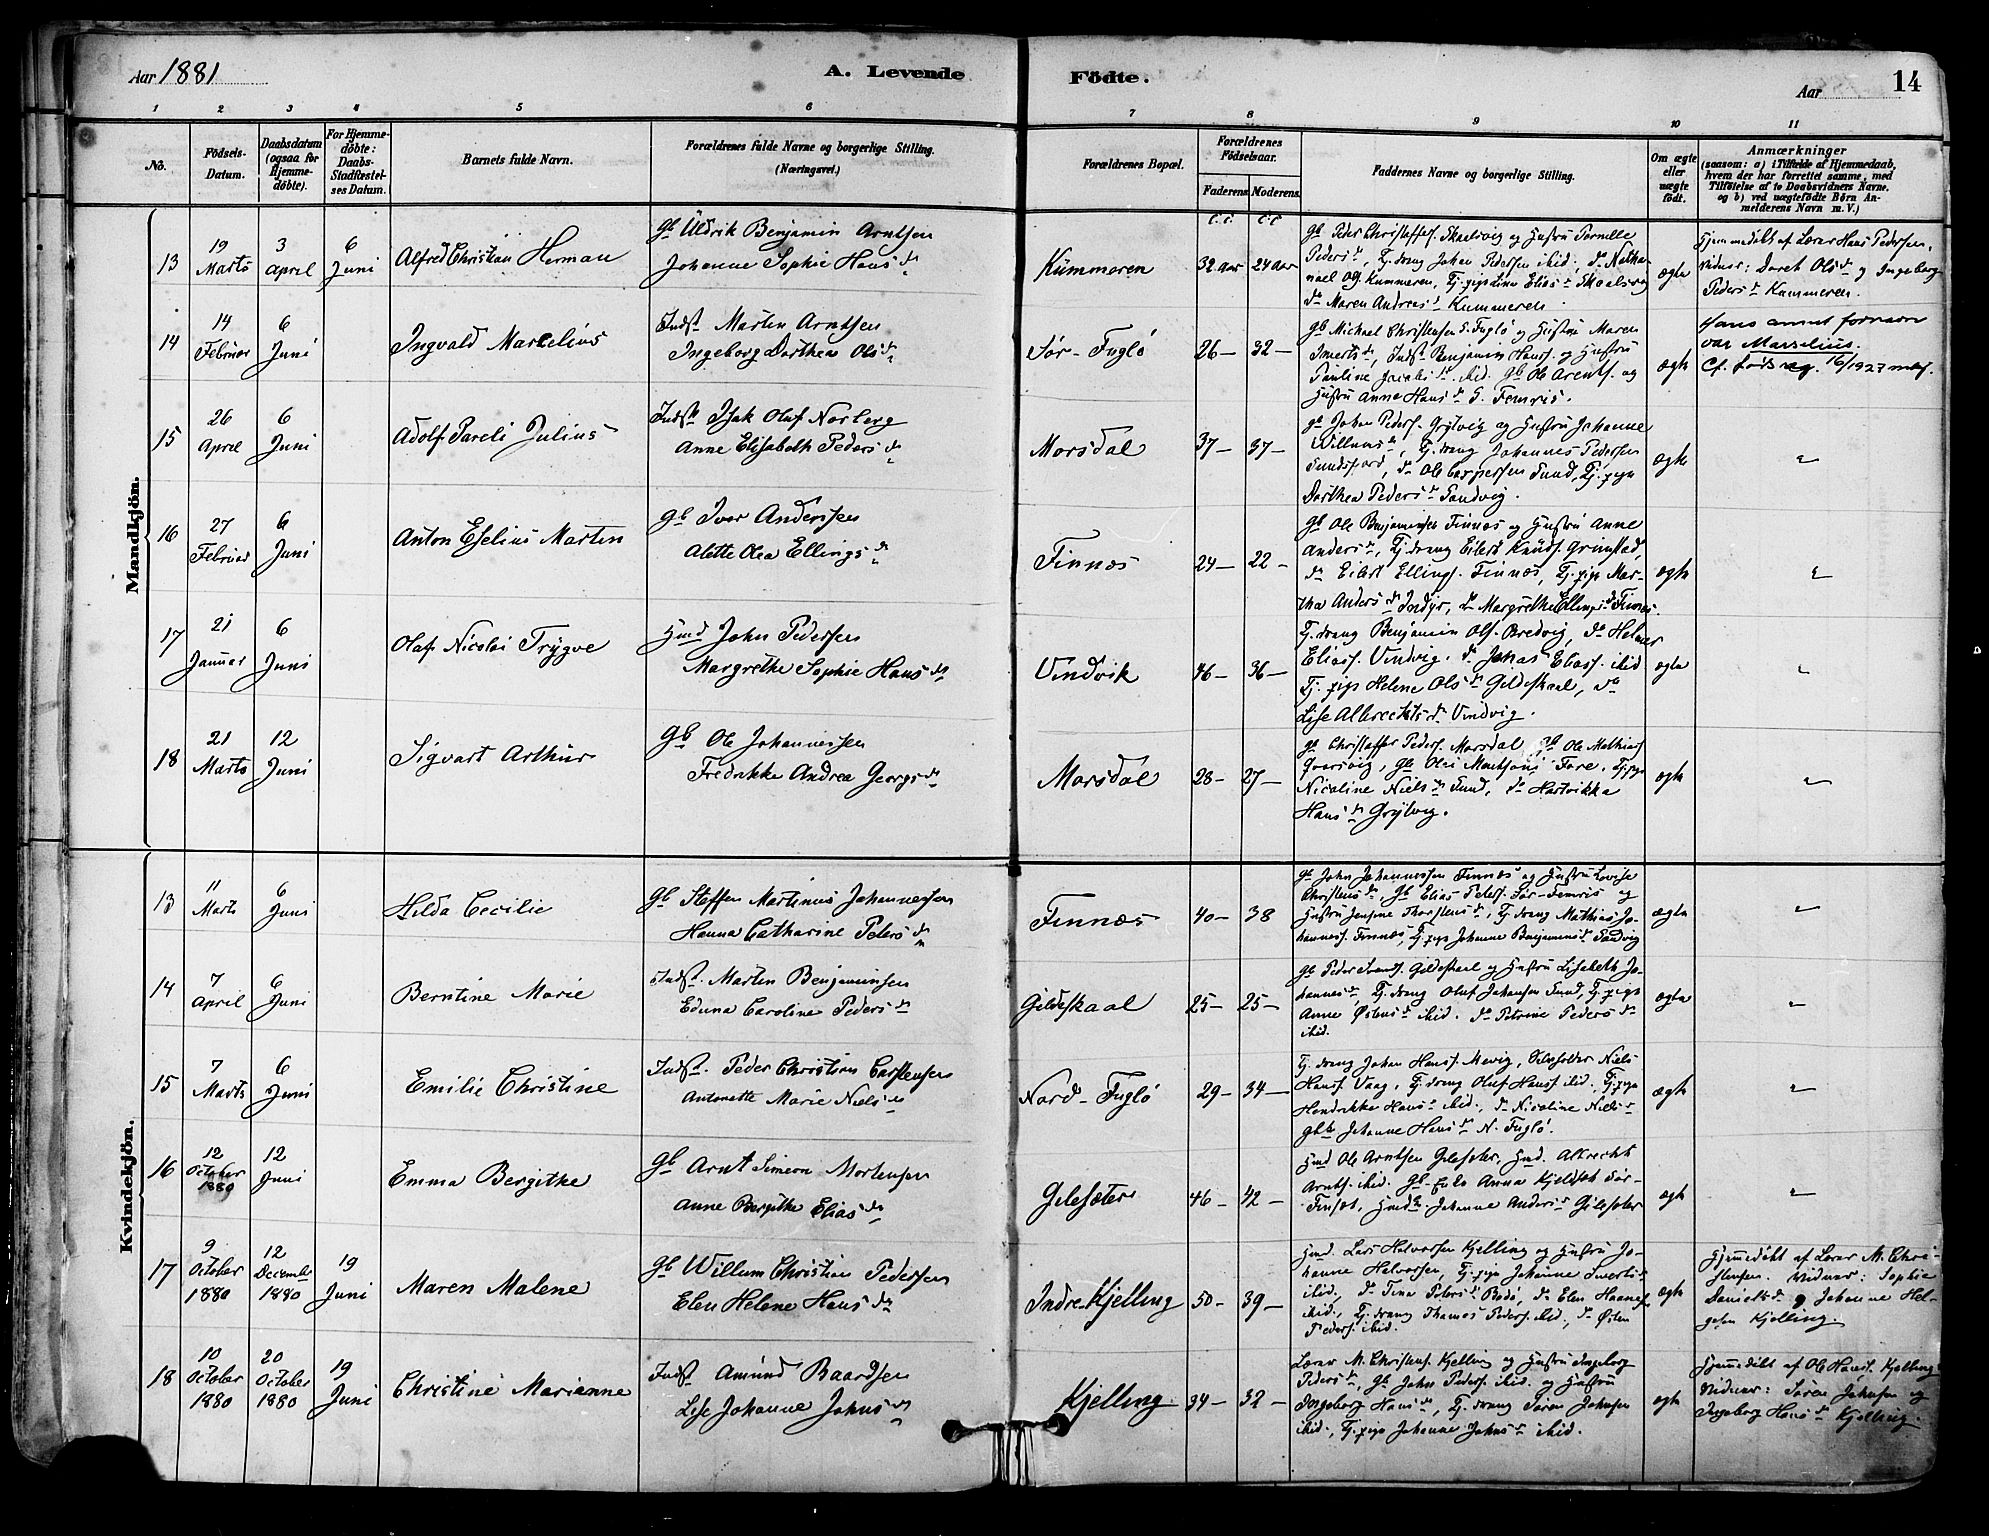 Aar 1881
A. Levende
Födte.
Aar
14
1 2 3 4 5 6 7 8 9 10 11
No.
Födsels-Datum.
Daabsdatum (ogsaa for Hjemmedöbte).
For Hjemmedöbte: Daabs-Stadfæstelses Datum.
Barnets fulde Navn.
Forældrenes fulde Navne og borgerlige Stilling. (Næringsvei.)
Forældrenes Bopæl.
Forældrenes Födselsaar.
Faderens. Moderens.
Faddernes Navne og borgerlige Stilling.
Om ægte eller uægte födt.
Anmærkninger
(saasom: a) i Tilfælde af Hjemmedaab, hvem der har forrettet samme, med Tilföielse af to Daabsvidners Navne, og b) ved uægtefödte Börn Anmelderens Navn m.V.)
Mandkjön.
13
19 Marts
3 April
6 Juni
Alfred Christian Herman
Gb Uldrik Benjamin Arntsen
Johanne Sophie Hans dr
Kummeren
32 aar 24 aar
ægte
Hjemmedöbt af Lærer Hans Pedersen,
Vidner: Doret Ols dr og Ingeborg
Peders dr Kummeren.
14
14 Februar
6 Juni
Ingvald Marcelius
Indst Martin Arntsen
Ingeborg Dorthea Ols dr
Sör-Fuglö
26 — 32 —
gb Michael Christensen S. Fuglö og Hustru Maren
Imerts dr, Indst Benjamin Hanss. og Hustru
Pauline Jacobs dr ibid. gb Ole Arents. og
Hustru Anne Hans dr S. Femris.
ægte
Hans annet fornavn
var Marselius.
Cf. födsreg. 16/1927
15
26 April
6 Juni
Adolf Pareli Julius
Indst Isak Oluf Norberg
Anne Elisabeth Peders dr
Morsdal
37 — 37 —
gb Johan Peders. Grytvig og Hustru Johanne
Willums dr, Tj. dreng Johannes Pedersen
Sundsfjord, do Ole Caspersen Sund, Tj. pige
Dorthea Peders dr Sandvig.
ægte
"
16
27 Februar
6 Juni
Anton Eselius Martin
Gb Iver Andersen
Alette Olea Ellings dr
Finnæs
24 — 22 —
Gb Ole Benjaminsen Finnæs og Hustru Anne
Anders dr, Tj. dreng Eilert Knuds. Grimstad,
do Eilert Ellings. Finnæs, Tj. pige Mar-
tha Anders dr Indyr, do Margrethe Ellings dr Finnæs.
ægte
"
17
21 Januar
6 Juni
Olaf Nicolai Trygve
Hmd John Pedersen
Margrethe Sophie Hans dr
Vindvik
46 — 36 —
Tj. dreng Benjamin Ols. Bredvig, do Helmer
Eliass. Vindvig. do Johas Eliass. ibid
Tj. pige Helene Ols dr Gildeskaal, do
Lise Albrechts dr Vindvig.
ægte
"
18
21 Marts
12 Juni
Sigvart Arthur
Gb Ole Johannessen
Fredrikke Andrea Georgs dr
Morsdal
28 — 27 —
gb Christoffer Peders. Morsdal, gb Ole Mathias
Fore. Tj. pige
Nicoline Niels dr Sund, do Hartvikka
Hans dr Grytvig.
ægte
"
Kvindekjön.
13
11 Marts
6 Juni
Hilda Cecilie
Gb Steffen Martinus Johannesen
Hanna Catharine Peters dr
Finnæs
40 — 38
Gb John Johannessen Finnæs og Hustru Lovise
Christens dr, Gb Elias Peters. Sör-Femris og
Hustru Jensine Thorstens dr, Tj. dreng Mathias Jo-
hanness. Finnæs, Tj. pige Johanne Benjamins dr Sandvig
ægte
"
14
7 April
6 Juni
Berntine Marie
Indst. Martin Benjaminsen
Edina Caroline Peders dr
Gildeskaal
25 — 25 —
gb Peder Gildeskaal og Hustru Lisabeth Jo-
hannes dr, Tj. dreng Oluf Johansen Sund, Tj. pige
Anne Östens dr ibid. do Petrine Peders dr
ibid.
ægte
"
15
7 Marts
6 Juni
Emilie Christine
Indst. Peder Christian Carstensen
Antonette Marie Niels dr
Nord-Fuglö
29 — 34 —
Tj. dreng Johan Hanss. Mevig, Niels
Hanss. Vaag, Tj. dreng Oluf Hanss. ibid. Tj. pige
Hendrikke Hans dr ibid., do Nicoline Niels dr
Johanne Hans dr N. Fuglö.
ægte
"
16
12 October 1880
12 Juni
Emma Bergitke
Gb Arnt Simeon Mortensen
Anne Bergitke Elias dr
Gilesæter
46 — 42 —
Hmd Ole Arntsen Gilesæter, Hmd. Albrecht
Arnts. ibid. Gb. Enke Anna Kjelds dr Sör-
Finset, Johanne Anders dr Gilesæter
ægte
"
17
9 October 1880
12 December 1880
19 Juni
Maren Malene
Gb Willum Christian Pedersen
Elen Helene Hans dr
Indre Kjelling
50 — 39 —
Hmd. Lars Halvorsen Kjelling og Hustru Jo-
hanne Helvorsen, Tj. pige Johanne
ibid., do Tina Peters dr Bodö, do Elen
ibid., Tj. dreng Thomas Peders. ibid., do Östen
Peders. ibid.
ægte
Hjemmedöbt af Lærer M. Chri-
stensen. Vidner: Sophie
Daniels dr og Johanne Hel-
gesen Kjelling.
18
10 October 1880
20 October 1880
19 Juni
Christine Marianne
Indst Amund Baardsen
Lise Johanne Johns dr
Kjelling
34 — 32 —
Lærer M. Christens. Kjelling og Hustru Ingeborg
Peders dr, Gb John Peders. ibid. og Hustru
Ingeborg Hans dr, Tj. dreng Sören Johnsen
ibid., Tj. pige Johanne Johns dr ibid.
ægte
Hjemmedöbt af Ole Hanss. Kjelling
Vidner: Sören Johnsen og
Ingeborg Hans dr Kjelling.